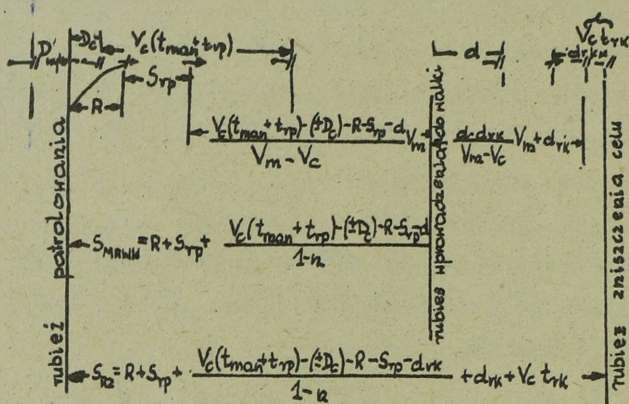 D' D_c V_c(t_man+t_rp) d V_c t_rk
S_rp d_rk
R
V_c(t_man+t_rp)-(±D_c)-R-S_rp-d
V_m
V_m-V_c
V_m+d_rk
V_m-V_c
S_MRWW=R+S_rp+
V_c(t_man+t_rp)-(±D_c)-R-S_rp-d
1-n
S_RZ=R+S_rp+
V_c(t_man+t_rp)-(±D_c)-R-S_rp-d_rk
1-n
+d_rk+V_c t_rk
rubież patrolowania
rubież wprowadzenia do walki
rubież zniszczenia celu